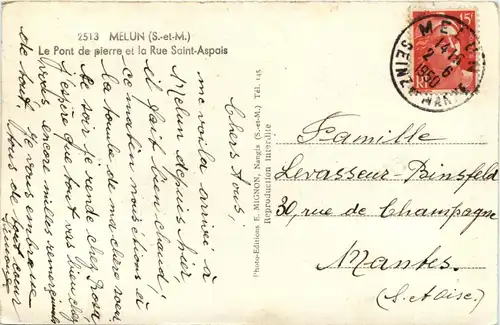 2513 MELUN (S.-et-M.)
Le Pont de pierre et la Rue Saint-Aspais
Chers tous,
me voilà arrivée à
Melun depuis hier,
il fait bien chaud;
ce matin nous étions à
la tombe de ma chère soeur
Ce soir je rends chez
J'espère que tout vas bien chez
vous encore milles remerciements
de tout, je vous embrasse
tous de tout coeur
Photo-Editions E. MIGNON, Nangis (S.-et-M.) Tél. 145
Reproduction interdite
15F
MELUN
1950
SEINE-ET-MARNE
Famille
Levasseur-Binsfeld
30, rue de Champagne
Mantes.
(S. Oise.)